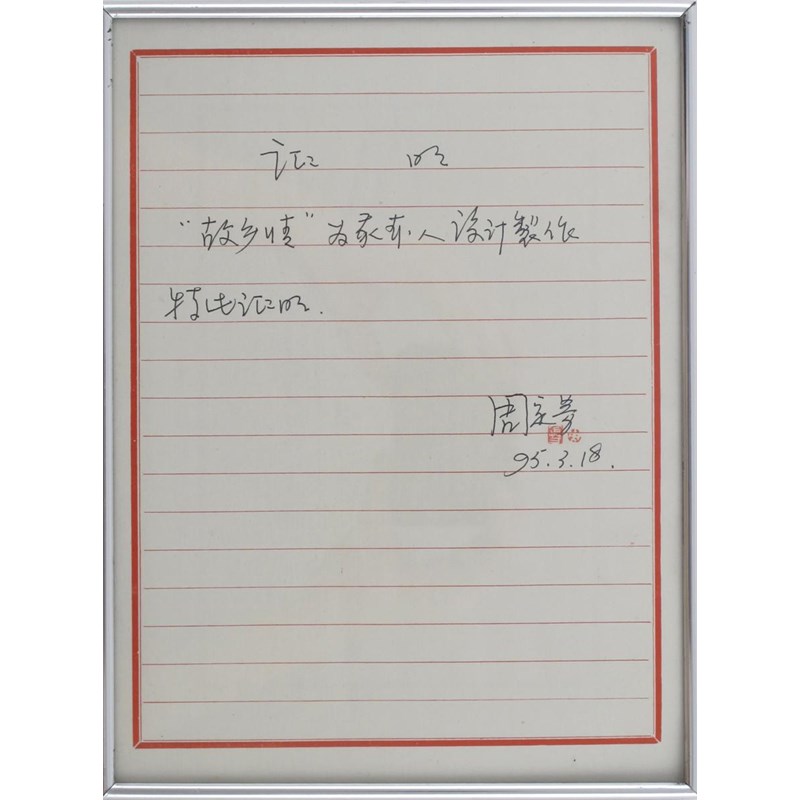 证 明
"故乡情"为我本人设计製作
特此证明.
周定芳
95.3.18.